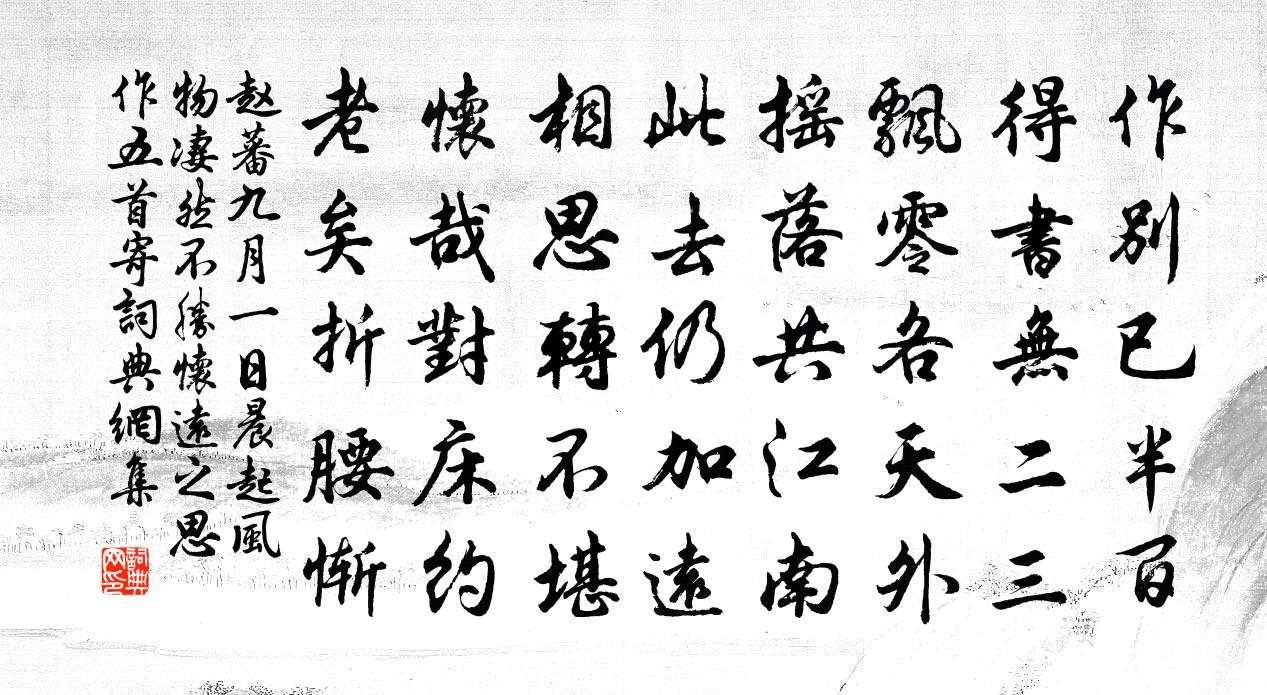 作別已半百
得書無二三
飄零各天外
搖落共江南
此去仍加遠
相思轉不堪
懷哉對床約
老矣折腰慚
赵蕃九月一日晨起風
物凄然不勝懷遠之思
作五首寄詞典網集
詞典網印